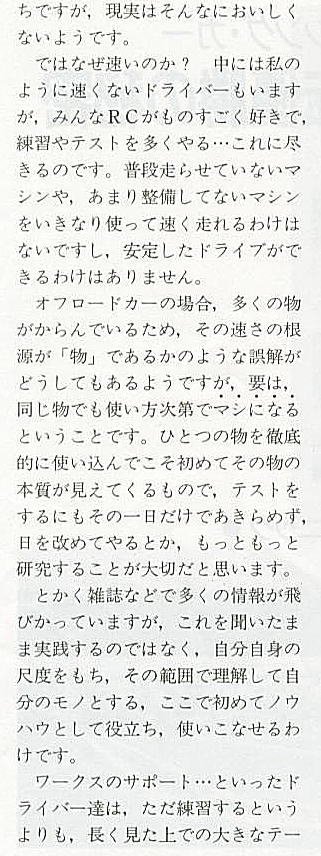 ちですが，現実はそんなにおいしく
ないようです。
　ではなぜ速いのか？　中には私の
ように速くないドライバーもいます
が，みんなＲＣがものすごく好きで，
練習やテストを多くやる…これに尽
きるのです。普段走らせていないマ
シンや，あまり整備してないマシン
をいきなり使って速く走れるわけは
ないですし，安定したドライブがで
きるわけはありません。
　オフロードカーの場合，多くの物
がからんでいるため，その速さの根
源が「物」であるかのような誤解が
どうしてもあるようですが，要は，
同じ物でも使い方次第でマシになる
ということです。ひとつの物を徹底
的に使い込んでこそ初めてその物の
本質が見えてくるもので，テストを
するにもその一日だけであきらめず，
日を改めてやるとか，もっともっと
研究することが大切だと思います。
　とかく雑誌などで多くの情報が飛
びかっていますが，これを聞いたま
ま実践するのではなく，自分自身の
尺度をもち，その範囲で理解して自
分のモノとする，ここで初めてノウ
ハウとして役立ち，使いこなせるわ
けです。
　ワークスのサポート…といったド
ライバー達は，ただ練習するという
よりも，長く見た上での大きなテー